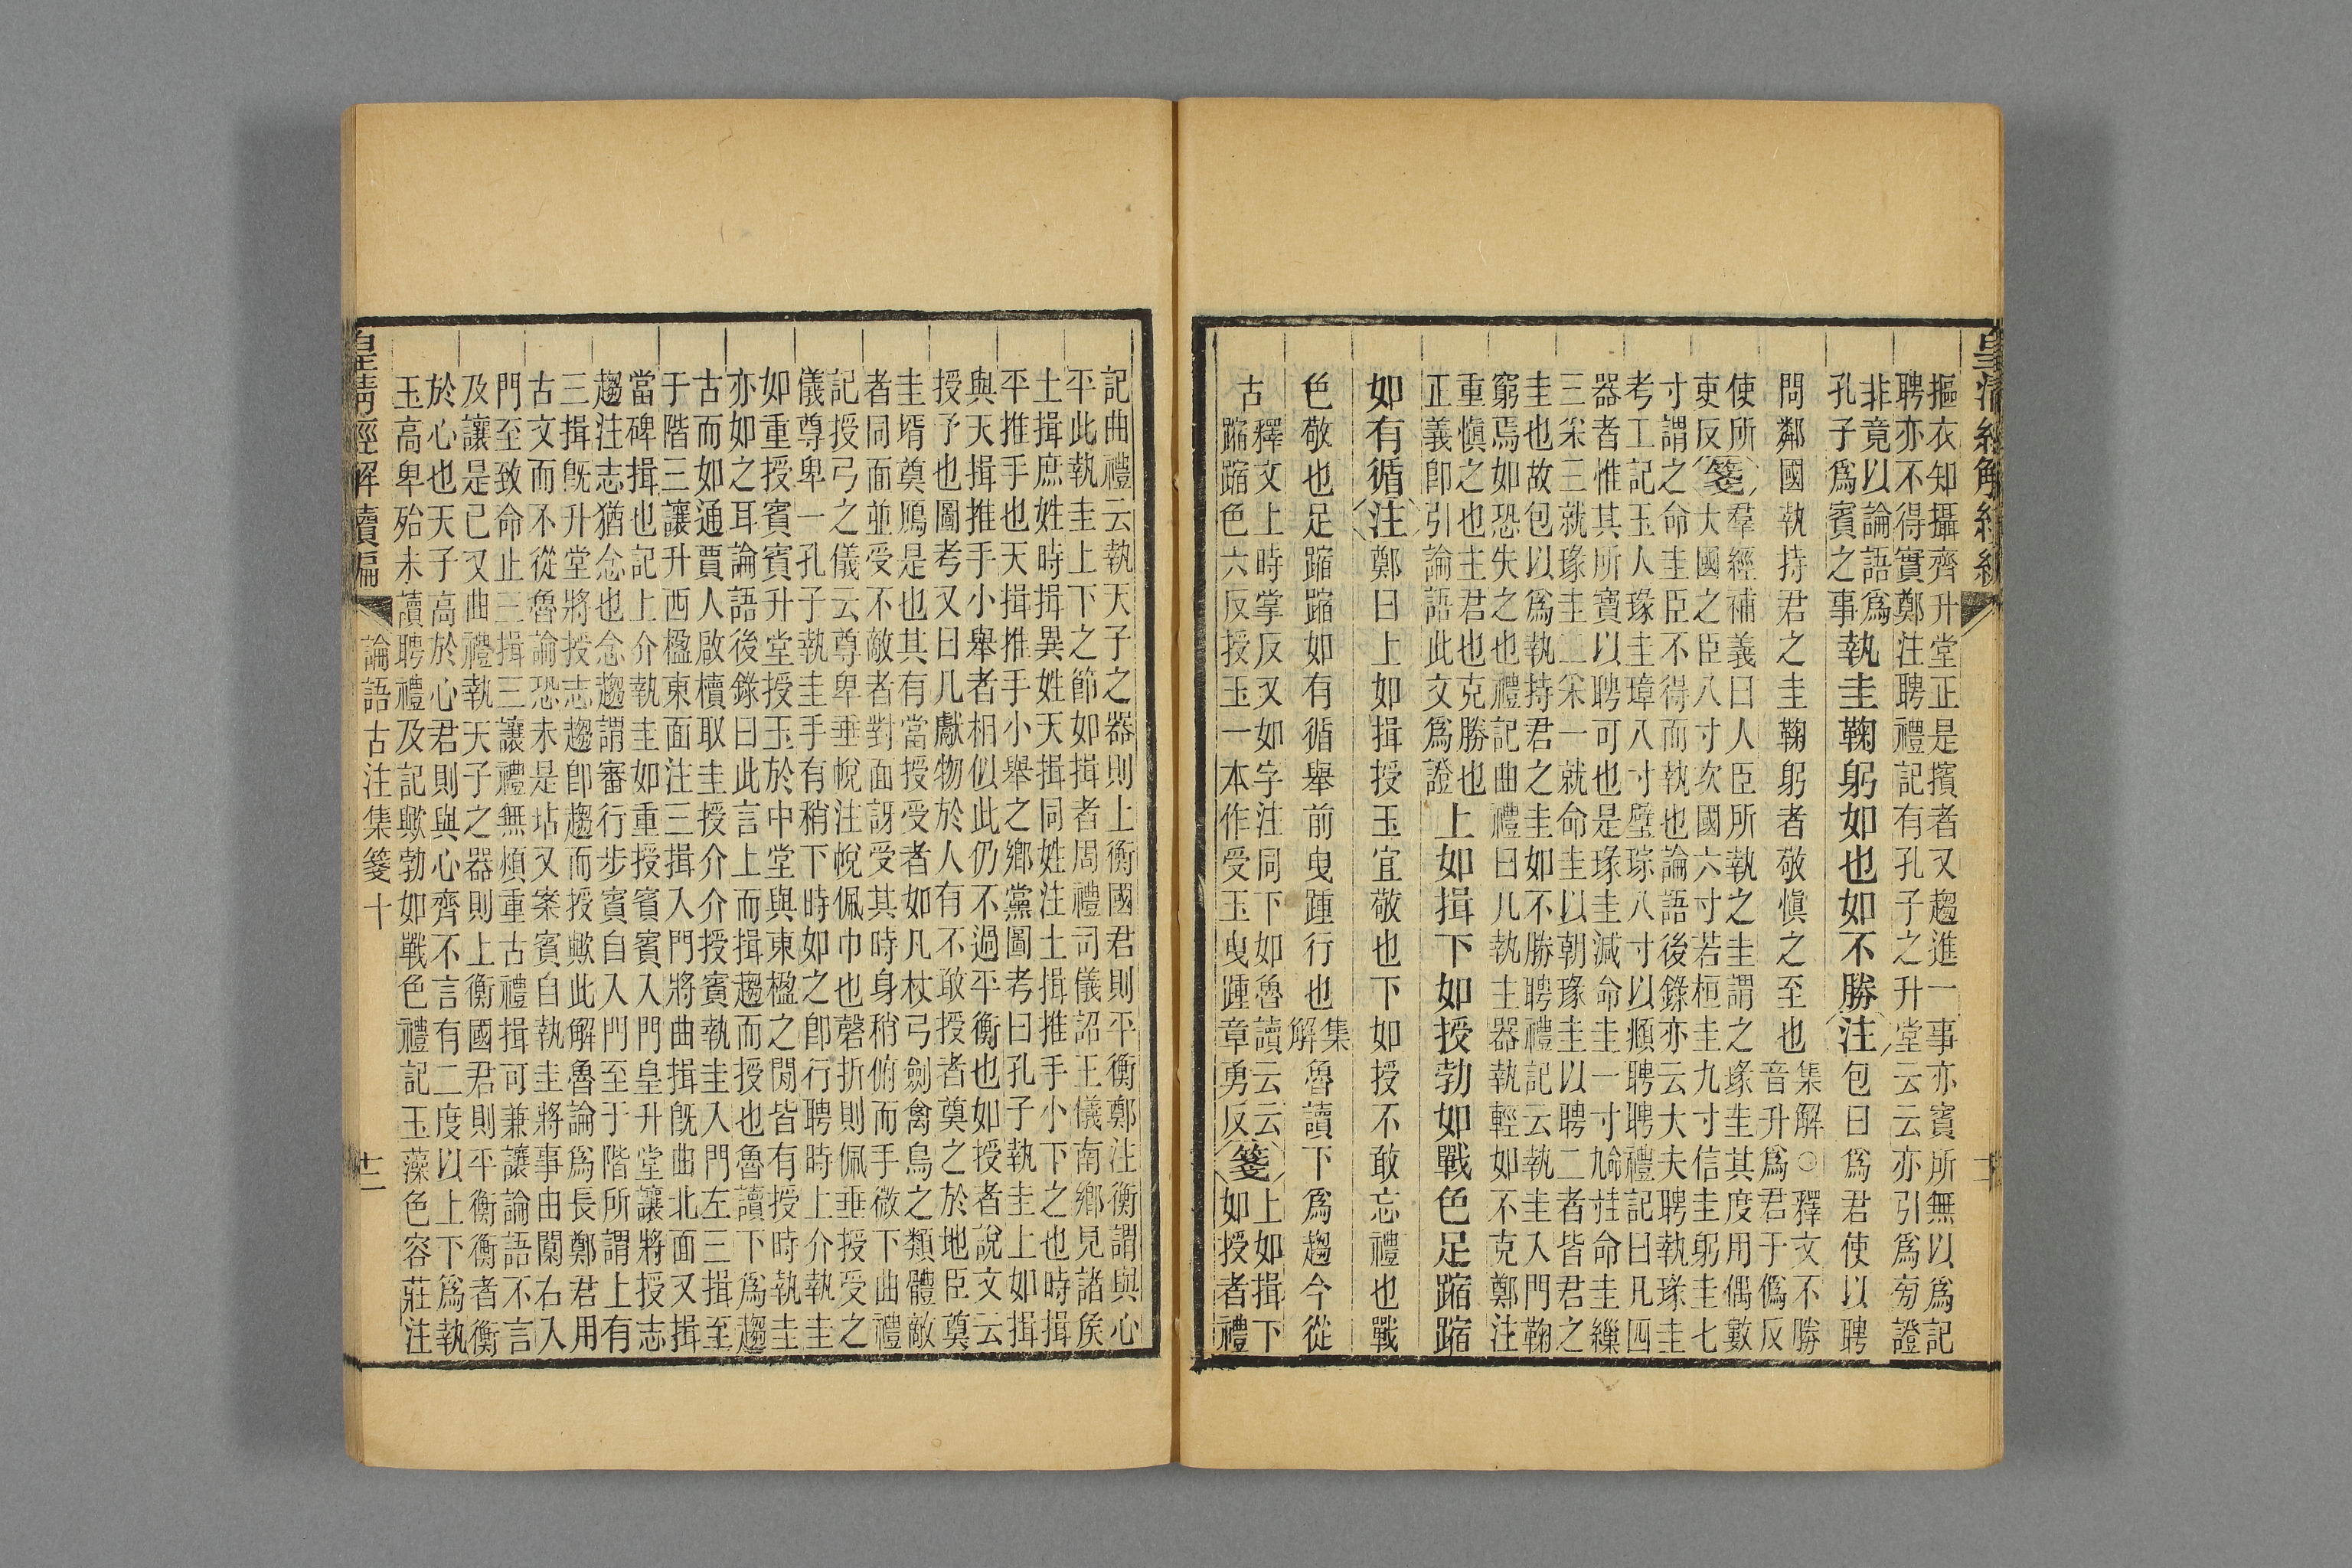 皇清經解續編
摳衣知攝齊升堂正是擯者又趨進一事亦賓所無以爲記
聘亦不得實鄭注聘禮記有孔子之升堂云云亦引爲旁證
非竟以論語爲
孔子爲賓之事
執圭鞠躬如也如不勝注包曰爲君使以聘
問鄰國執持君之圭鞠躬者敬愼之至也
集解○釋文不勝
音升爲君于僞反
使所
吏反
箋羣經補義曰人臣所執之圭謂之瑑圭其度用偶數
大國之臣八寸次國六寸若桓圭九寸信圭躬圭七
寸謂之命圭臣不得而執也論語後錄亦云大夫聘執瑑圭
考工記玉人瑑圭璋八寸璧琮八寸以頫聘聘禮記曰凡四
器者惟其所寶以聘可也是瑑圭減命圭一寸命圭繅
三采三就瑑圭二采一就命圭以朝瑑圭以聘二者皆君之
圭也故包以爲執持君之圭如不勝聘禮記云執圭入門鞠
窮焉如恐失之也禮記曲禮曰凡執主器執輕如不克鄭注
重愼之也主君也克勝也
正義卽引論語此文爲證
上如揖下如授勃如戰色足蹜蹜
如有循注鄭曰上如揖授玉宜敬也下如授不敢忘禮也戰
色敬也足蹜蹜如有循舉前曳踵行也集解魯讀下爲趨今從
古
釋文上時掌反又如字注同下如魯讀云云
蹜蹜色六反授玉一本作受玉曳踵章勇反
箋上如揖下
如授者禮
記曲禮云執天子之器則上衡國君則平衡鄭注衡謂與心
平此執圭上下之節如揖者周禮司儀詔王儀南鄉見諸侯
土揖庶姓時揖異姓天揖同姓注土揖推手小下之也時揖
平推手也天揖推手小舉之鄉黨圖考曰孔子執圭上如揖
與天揖推手小舉者相似此仍不過平衡也如授者說文云
授予也圖考又曰凡獻物於人有不敢授者奠之於地臣奠
圭壻奠鴈是也其有當授受者如凡杖弓劍禽鳥之類體敵
者同面並受不敵者對面訝受其時身稍俯而手微下曲禮
記授弓之儀云尊卑垂帨注帨佩巾也磬折則佩垂授受之
儀尊卑一孔子執圭手有稍下時如之卽行聘時上介執圭
如重授賓賓升堂授玉於中堂與東楹之閒皆有授時執圭
亦如之耳論語後錄曰此言上而揖趨而授也魯讀下爲趨
古而如通賈人啟櫝取圭授介介授賓執圭入門左三揖至
于階三讓升西楹東面注三揖入門將曲揖旣曲北面又揖
當碑揖也記上介執圭如重授賓賓入門皇升堂讓將授志
趨注志猶念也念趨謂審行步賓自入門至于階所謂上有
三揖旣升堂將授志趨卽趨而授歟此解魯論爲長鄭君用
古文而不從魯論恐未是坫又案賓自執圭將事由闑右入
門至致命止三揖三讓禮無煩重古禮揖可兼讓論語不言
及讓是已又曲禮執天子之器則上衡國君則平衡衡者衡
於心也天子高於心君則與心齊不言有二度以上下爲執
玉高卑殆未讀聘禮及記歟勃如戰色禮記玉藻色容莊注
皇清經解續編 論語古注集箋十 十二